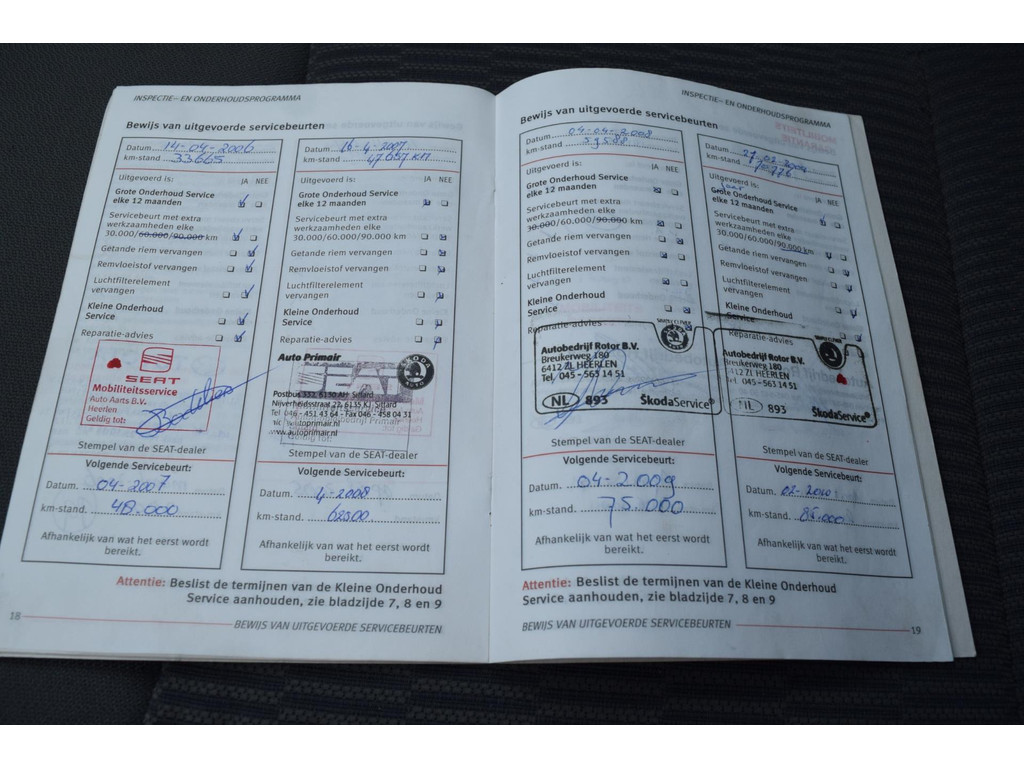 INSPECTIE- EN ONDERHOUDSPROGRAMMA
Bewijs van uitgevoerde servicebeurten
Datum 14-04-2006
km-stand 33665
Uitgevoerd is: JA NEE
Grote Onderhoud Service
elke 12 maanden
Servicebeurt met extra
werkzaamheden elke
30.000/60.000/90.000 km
Getande riem vervangen
Remvloeistof vervangen
Luchtfilterelement
vervangen
Kleine Onderhoud
Service
Reparatie-advies
SEAT
Mobiliteitsservice
Auto Aarts B.V.
Heerlen
Geldig tot:
Stempel van de SEAT-dealer
Volgende Servicebeurt:
Datum. 04-2007
km-stand. 48.000
Afhankelijk van wat het eerst wordt
bereikt.
Datum 16-4-2007
km-stand 47657 KM
Uitgevoerd is: JA NEE
Grote Onderhoud Service
elke 12 maanden
Servicebeurt met extra
werkzaamheden elke
30.000/60.000/90.000 km
Getande riem vervangen
Remvloeistof vervangen
Luchtfilterelement
vervangen
Kleine Onderhoud
Service
Reparatie-advies
Auto Primair
SEAT
SKODA
Postbus 332, 6130 AH Sittard
Nijverheidsstraat 22, 6135 KJ Sittard
Tel 046 - 451 43 64 - Fax 046 - 458 04 31
www.autoprimair.nl
Geldig tot:
Stempel van de SEAT-dealer
Volgende Servicebeurt:
Datum. 4-2008
km-stand. 62500
Afhankelijk van wat het eerst wordt
bereikt.
Attentie: Beslist de termijnen van de Kleine Onderhoud
Service aanhouden, zie bladzijde 7, 8 en 9
18
BEWIJS VAN UITGEVOERDE SERVICEBEURTEN
INSPECTIE- EN ONDERHOUDSPROGRAMMA
Bewijs van uitgevoerde servicebeurten
Datum 04-04-2008
km-stand 59588
Uitgevoerd is: JA NEE
Grote Onderhoud Service
elke 12 maanden
Servicebeurt met extra
werkzaamheden elke
30.000/60.000/90.000 km
Getande riem vervangen
Remvloeistof vervangen
Luchtfilterelement
vervangen
Kleine Onderhoud
Service
Reparatie-advies
Autobedrijf Rotor B.V.
Breukerweg 180
6412 ZL HEERLEN
Tel. 045 - 563 14 51
NL 893 ŠkodaService
Stempel van de SEAT-dealer
Volgende Servicebeurt:
Datum. 04-2009
km-stand. 75.000
Afhankelijk van wat het eerst wordt
bereikt.
Datum 27-02-2009
km-stand 70776
Uitgevoerd is: JA NEE
Grote Onderhoud Service
elke 12 maanden
Servicebeurt met extra
werkzaamheden elke
30.000/60.000/90.000 km
Getande riem vervangen
Remvloeistof vervangen
Luchtfilterelement
vervangen
Kleine Onderhoud
Service
Reparatie-advies
Autobedrijf Rotor B.V.
Breukerweg 180
6412 ZL HEERLEN
Tel. 045 - 563 14 51
NL 893 ŠkodaService
Stempel van de SEAT-dealer
Volgende Servicebeurt:
Datum. 02-2010
km-stand. 85.000
Afhankelijk van wat het eerst wordt
bereikt.
Attentie: Beslist de termijnen van de Kleine Onderhoud
Service aanhouden, zie bladzijde 7, 8 en 9
BEWIJS VAN UITGEVOERDE SERVICEBEURTEN
19